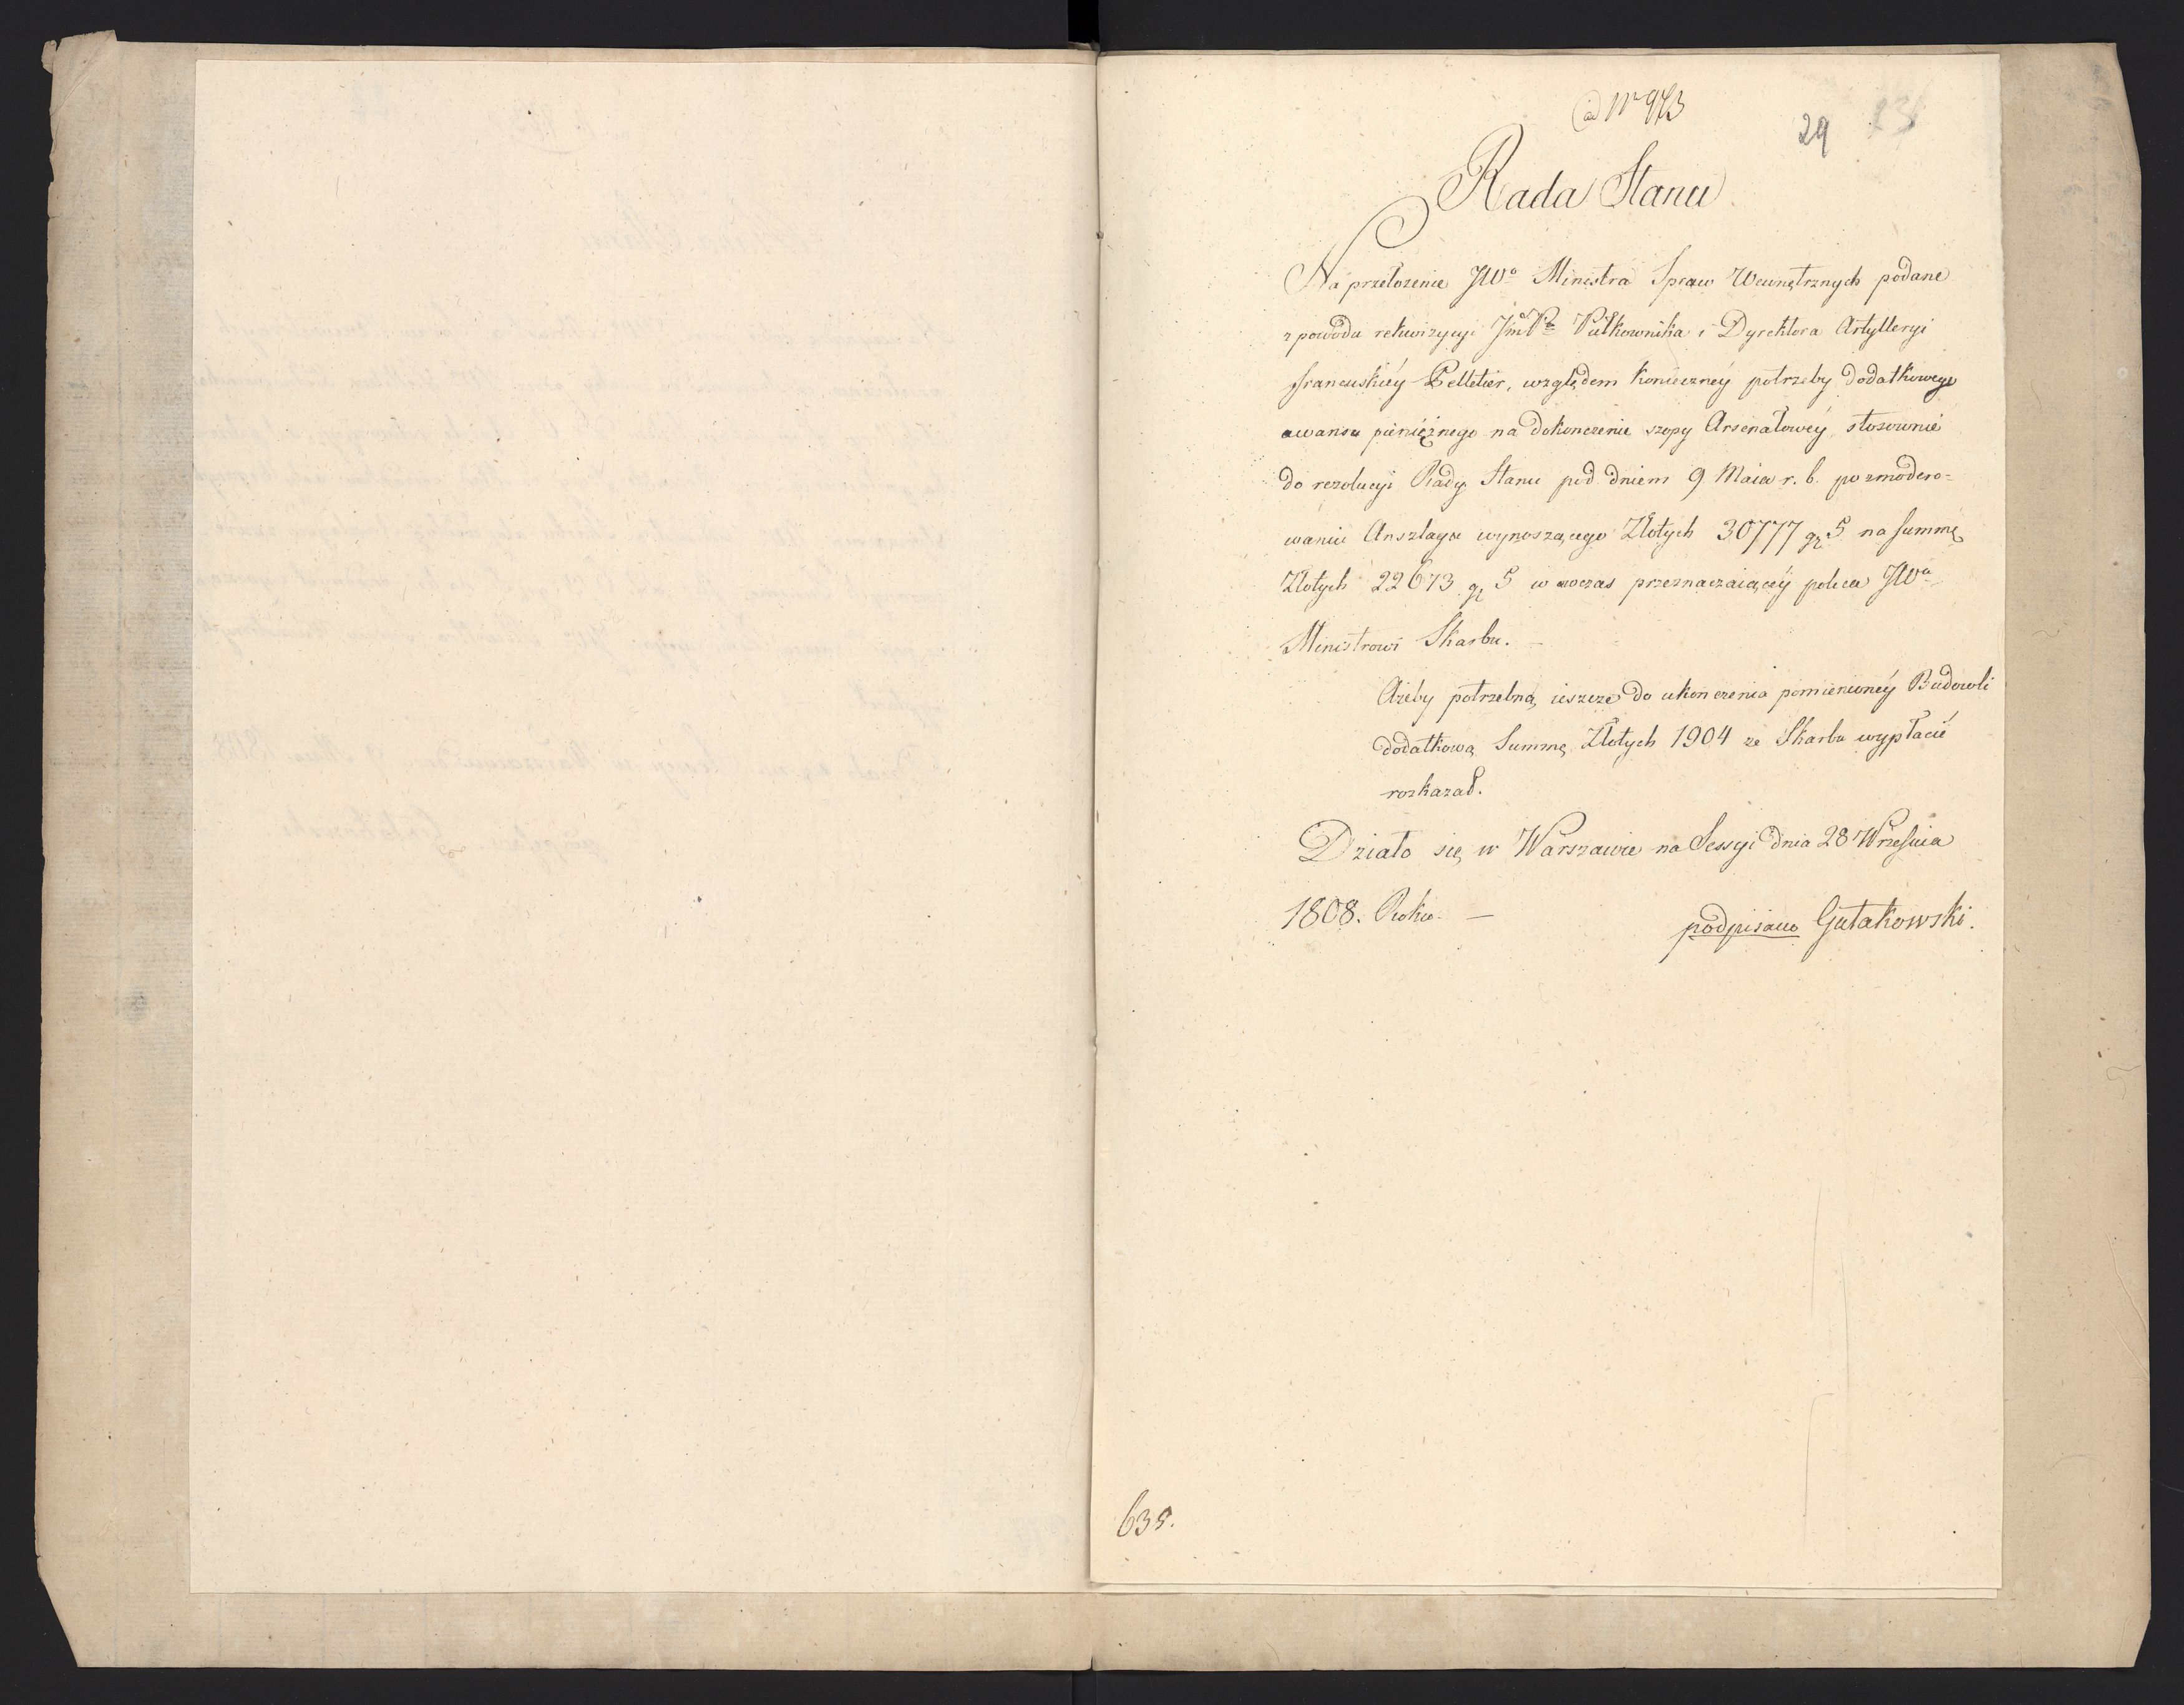 ad Nr 973
29 23
Rada Stanu
Na przełożenie JWo Ministra Spraw Wewnętrznych podane
z powodu rekwizycyi JmPa Pułkownika i Dyrektora Artylleryi
francuskiéy Pelletier, względem konieczney potrzeby dodatkowego
awansu pieniężnego na dokonczenie szopy Arsenałowéy stosownie
do rezolucyi Rady Stanu pod dniem 9 Maia r. b. po zmodero=
waniu Anszlagu wynoszącego Złotych 30777 gr 5 na summę
Złotych 22673 gr 5 w wczas przeznaczaiącéy poleca JWu
Ministrowi Skarbu. —
Ażeby potrzebną ieszcze do ukonczenia pomienionéy Budowli
dodatkową Summę Złotych 1904 ze Skarbu wypłacić
rozkazał.
Działo się w Warszawie na Sessyi dnia 28 Września
1808. Roku —
podpisano Gutakowski.
635.